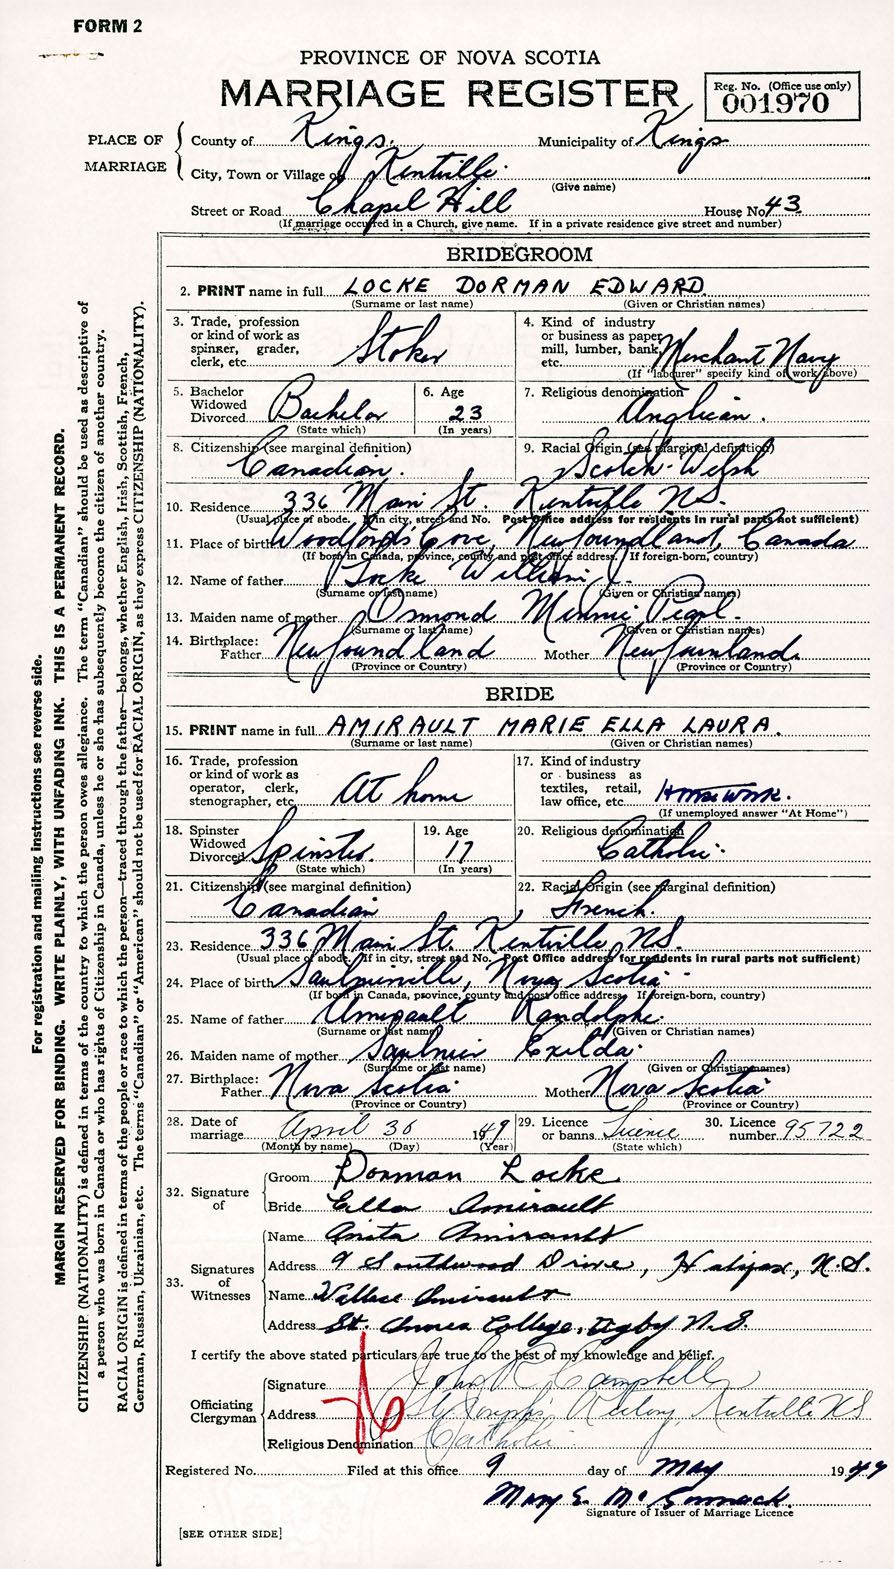 FORM 2
PROVINCE OF NOVA SCOTIA
MARRIAGE REGISTER
Reg. No. (Office use only)
001970
PLACE OF MARRIAGE
County of Kings. Municipality of Kings
City, Town or Village of Kentville.
(Give name)
Street or Road Chapel Hill House No. 43
(If marriage occured in a Church, give name. If in a private residence give street and number)
BRIDEGROOM
2. PRINT name in full LOCKE DORMAN EDWARD
(Surname or last name) (Given or Christian names)
3. Trade, profession or kind of work as spinner, grader, clerk, etc. Stoker
4. Kind of industry or business as paper mill, lumber, bank, etc. Merchant Navy
(If "labourer" specify kind of work above)
5. Bachelor Widowed Divorced Bachelor
(State which)
6. Age 23
(In years)
7. Religious denomination Anglican.
8. Citizenship (see marginal definition) Canadian.
9. Racial Origin (see marginal definition) Scotch-Welsh
10. Residence 336 Main St. Kentville N.S.
(Usual place of abode. If in city, street and No. Post Office address for residents in rural parts not sufficient)
11. Place of birth Woodfords Cove, Newfoundland, Canada
(If born in Canada, province, county and post office address. If foreign-born, country)
12. Name of father Locke William J.
(Surname or last name) (Given or Christian names)
13. Maiden name of mother Osmond Minnie Pearl.
(Surname or last name) (Given or Christian names)
14. Birthplace: Father Newfoundland Mother Newfoundland.
(Province or Country) (Province or Country)
BRIDE
15. PRINT name in full AMIRAULT MARIE ELLA LAURA.
(Surname or last name) (Given or Christian names)
16. Trade, profession or kind of work as operator, clerk, stenographer, etc. At home
17. Kind of industry or business as textiles, retail, law office, etc. Housework.
(If unemployed answer "At Home")
18. Spinster Widowed Divorced Spinster.
(State which)
19. Age 17
(In years)
20. Religious denomination Catholic.
21. Citizenship (see marginal definition) Canadian
22. Racial Origin (see marginal definition) French.
23. Residence 336 Main St. Kentville, N.S.
(Usual place of abode. If in city, street and No. Post Office address for residents in rural parts not sufficient)
24. Place of birth Saulnierville, Nova Scotia
(If born in Canada, province, county and post office address. If foreign-born, country)
25. Name of father Amirault Randolphe.
(Surname or last name) (Given or Christian names)
26. Maiden name of mother Saulnier Exilda.
(Surname or last name) (Given or Christian names)
27. Birthplace: Father Nova Scotia Mother Nova Scotia
(Province or Country) (Province or Country)
28. Date of marriage April 30 1949
(Month by name) (Day) (Year)
29. Licence or banns Licence
(State which)
30. Licence number 95722
32. Signature of
Groom Dorman Locke.
Bride Ella Amirault
33. Signatures of Witnesses
Name Anita Amirault
Address 9 Southwood Drive, Halifax, N.S.
Name Wallace Amirault
Address St. Annes College, Digby N.S.
I certify the above stated particulars are true to the best of my knowledge and belief.
Officiating Clergyman
Signature John R. Campbell
Address St Joseph's Rectory, Kentville NS
Religious Denomination Catholic
Registered No. Filed at this office 9 day of May 1949
Mary E. McCormack.
Signature of Issuer of Marriage Licence
[SEE OTHER SIDE]
For registration and mailing instructions see reverse side.
MARGIN RESERVED FOR BINDING. WRITE PLAINLY, WITH UNFADING INK. THIS IS A PERMANENT RECORD.
CITIZENSHIP (NATIONALITY) is defined in terms of the country to which the person owes allegiance. The term "Canadian" should be used as descriptive of
a person who was born in Canada or who has rights of Citizenship in Canada, unless he or she has subsequently become the citizen of another country.
RACIAL ORIGIN is defined in terms of the people or race to which the person—traced through the father—belongs, whether English, Irish, Scottish, French,
German, Russian, Ukrainian, etc. The terms "Canadian" or "American" should not be used for RACIAL ORIGIN, as they express CITIZENSHIP (NATIONALITY).